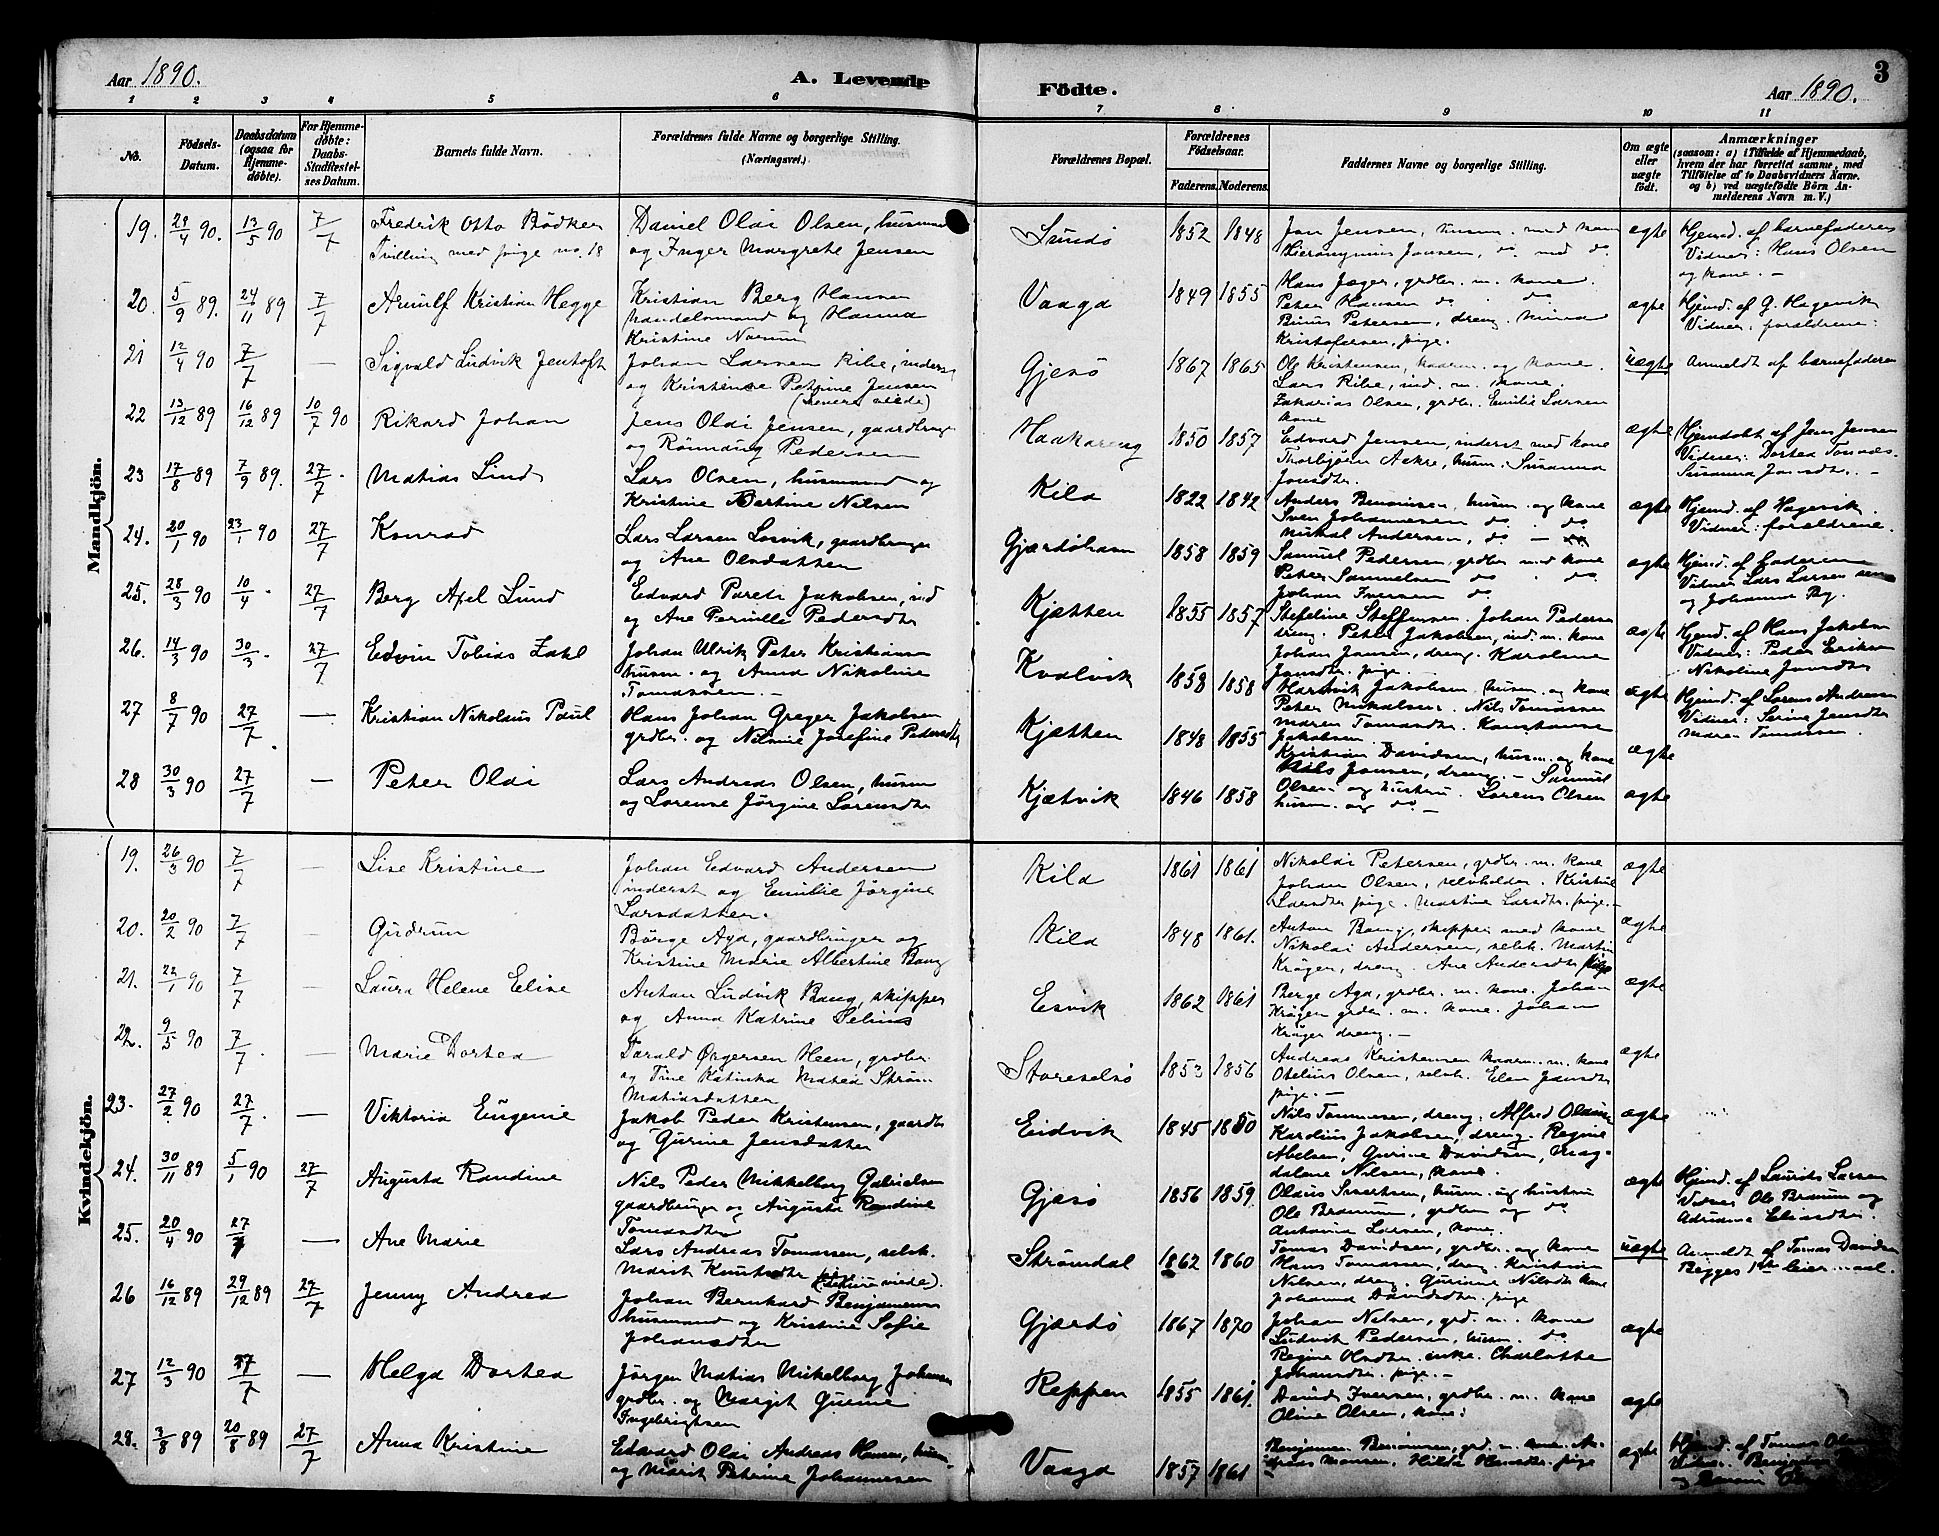 Aar 1890.
A. Levende Födte.
Aar 1890.
3
1 2 3 4 5 6 7 8 9 10 11
No.
Födsels-Datum.
Daabsdatum (ogsaa for Hjemme-döbte).
For Hjemme-döbte: Daabs-Stadfæstel-ses Datum.
Barnets fulde Navn.
Forældrenes fulde Navne og borgerlige Stilling. (Næringsvei.)
Forældrenes Bopæl.
Forældrenes Födselsaar.
Faderens. Moderens.
Faddernes Navne og borgerlige Stilling.
Om ægte eller uægte födt.
Anmærkninger
(saasom: a) i Tilfælde af Hjemmedaab, hvem der har forrettet samme, med Tilföielse af to Daabsvidners Navne. og b) ved uægtefödte Börn Anmelderens Navn m. V.)
Mandkjön.
19. 23/4 90. 13/5 90 7/7 Fredrik Otto Bödker Daniel Olai Olsen, husmand Sundö 1852 1848 Jon Jensen, husm. med kone ægte Hjemd. af barnefaderen
Tvilling med pige no. 18 og Inger Margrete Jensen Hieronymus Jansen, do. md do. Vidner: Hans Olsen
og kone. —
20. 5/9 89. 24/11 89 7/7 Arnulf Kristian Hegge Kristian Berg Hansen Vaaga 1849 1855 Hans Jæger, grdbr. m. kone. ægte Hjemd. af G. Hagevik
handelsmand og Hanna Peter Hansen do. do. Vidner: forældrene:
Kristine Norum Petersen, dreng. Kristofersen, pige.
21 12/4 90 7/7 — Sigvald Ludvik Jentoft Johan Larsen Kibe, inderst Gjesö 1867 1865 Ole Kristensen, og kone. uægte Anmeldt af barnefaderen
og Kristence Petrine Jensen Lars Kibe, ind. m. kone.
Zakarias Olsen, grdbr. Emilie Larsen
kone
22 13/12 89 16/12 89 10/7 90 Rikard Johan Jens Olai Jensen, gaardbruger Haakareng 1850 1857 Edvard Jensen, inderst med kone ægte Hjemdöbt af Jens Jensen
og Rönnaug Pedersen Thorbjörn Aakre, husm. Susanna Vidner: Dortea
Jonsdtr. Susanna Jonsdtr. —
23 17/8 89 7/9 89. 27/7 Matias Lind Lars Olsen, husmand og Kila 1822 1842 Anders, husm. og kone ægte Hjemd. af Hagevik
Kristine Bertine Nilsen Sven Johannesen do. do Vidner: forældrene.
Mikal Andersen, do —
24. 20/1 90 23/1 90 27/7 Konrad Lars Larsen Losvik, gaardbruger Gjærdöhavn 1858 1859 Samuel Pedersen, grdbr. med kone ægte Hjemd. af faderen
og Ane Olsdatter Peter Samuelsen do do Vidner Lars Larsen
Johan Iversen do. og Johanna
25. 28/3 90 10/4 27/7 Berg Axel Lund Edvard Jakobsen, ind Kjætten 1855 1857 Steffensen. Johan Pedersen ægte Hjemd. af Hans Jakobsen
og Ane Pernille Pedersdtr dreng. Peter Jakobsen, ind. m. kone Vidner: Peder Eriksen
26. 14/3 90 30/3 27/7 Edvin Tobias Zahl Johan Ulrik Peter Kristiansen Kvalvik 1858 1858 Johan Jansen, dreng. Karoline Jonsdtr. pige. ægte Nikoline Jonsdtr
husm. og Anna Nikoline Hartvik Jakobsen, husm. og kone Hjemd. af Lorens Andersen
Tomassen. — Peter Mikalsen. Nils Tomassen Vidner: Serine Jensdtr
27 8/7 90 27/7 — Kristian Nikolaus Paul Hans Johan Greger Jakobsen Kjætten 1848 1855 Maren Tomasdtr. Konstanse Jakobsen. ægte Maren Tomassen.
grdbr. og Nilsine Josefine Pedersdtr Kristian Davidsen, husm. og kone
28 30/3 90 27/7 — Peter Olai Lars Andreas Olsen, husm Kjætvik 1846 1858 Nils Jonsen, dreng. — Samuel Olsen og hustru. Lorens Olsen ægte
og Lorense Jörgine Lorensdtr husm. og do. —
Kvindekjön.
19. 26/3 90 7/7 — Lise Kristine Johan Edvard Andersen Kila 1861 1861 Nikolai Petersen, grdbr. m. kone ægte
inderst og Emilie Jörgine Johan Olsen, selveholder. Kristine
Larsdatter. Larsdtr pige. Martine Larsdtr. pige. —
20. 20/2 90 7/7 — Gudrun Börge Aga, gaardbruger og Kila 1848 1861. Anton Bang, skipper med kone ægte
Kristine Marie Albertine Bang Nikolai Andersen, selvh. Martin Kröger, dreng. Ane Andersdtr pige
21. 22/1 90 7/7 — Laura Helene Elise Anton Ludvik Bang, skipper Esvik 1862 1861 Berge Aga, grdbr. m. kone. Johan ægte
og Anna Katrine Selius Kröger grdbr. m. kone. Johan
Kröger dreng. —
22. 9/5 90 7/7. — Marie Dortea Tarald Örgersen Heen, grdbr. Storeselsö 1853 1856 Andreas Kristensen m. kone ægte
og Tine Katinka Matea Ström Otelius Olsen, selvh. Elen Jansdtr
Matiasdatter pige. —
23. 27/2 90 27/7. — Viktoria Eugenie Jakob Peder Kristensen, gaardbr Eidvik 1845 1850 Nils Tommesen, dreng. Alfred ægte
og Gurine Jensdatter Karolius Jakobsen, dreng. Regine Abelsen, Gurine Davidsen, Magdalene Nilsen, kone.
24. 30/11 89 5/1 90 27/7 Augusta Randine Nils Peder Mikkelborg Gabrielsen Gjæsö 1856 1859. Olaus Sivertsen, husm. og hustru ægte Hjemd. af Laurits Larsen
gaardbruger og Augusta Randine Ole Brænum, grdbr og do. Vidner Ole Brænum og
Tomasdtr Antonia Larsen, kone. Adriana Eliasdtr.
25. 20/4 90 27/7 — Ane Marie Lars Andreas Tomassen, selvh. Strömdal 1862 1860 Tomas Davidsen, grdbr. og kone uægte Anmeldt af Tomas Davidsen
Marit Knutsdtr Hans Tomassen, dreng. Kristian Begges 1ste leier...aal.
Nilsen, dreng. Gurine Nilsdtr kone
Johanna Davidsdtr. pige
26 16/12 89 29/12 89 27/7 Jenny Andrea Johan Bernhard Benjaminsen Gjærdö 1867 1870 Johan Nilsen, grd. m. kone ægte
husmand og Kristine Sofie Ludvik Pedersen, husm. do.
Johansdtr Regine Olsdtr. enke. Charlotte
27 12/3 90 27/7 — Helga Dortea Jörgen Matias Mikelborg Johansen Reppen 1855 1861. Johansdtr. pige. — ægte
grdbr. og Margit Gurine David Iversen, grdbr. m. kone
Ingebrigtsen Oline Olsen, kone:
28. 3/8 89 20/8 89 27/7 Anna Kristine Edvard Olai Andreas Hansen, husm. Vaaga 1857 1861 Benjamin, grd. m. kone. ægte Hjemd. af Tomas
og Marit Petrine Johannesen Hansen, Hilda Hansdtr. pige Vidner.